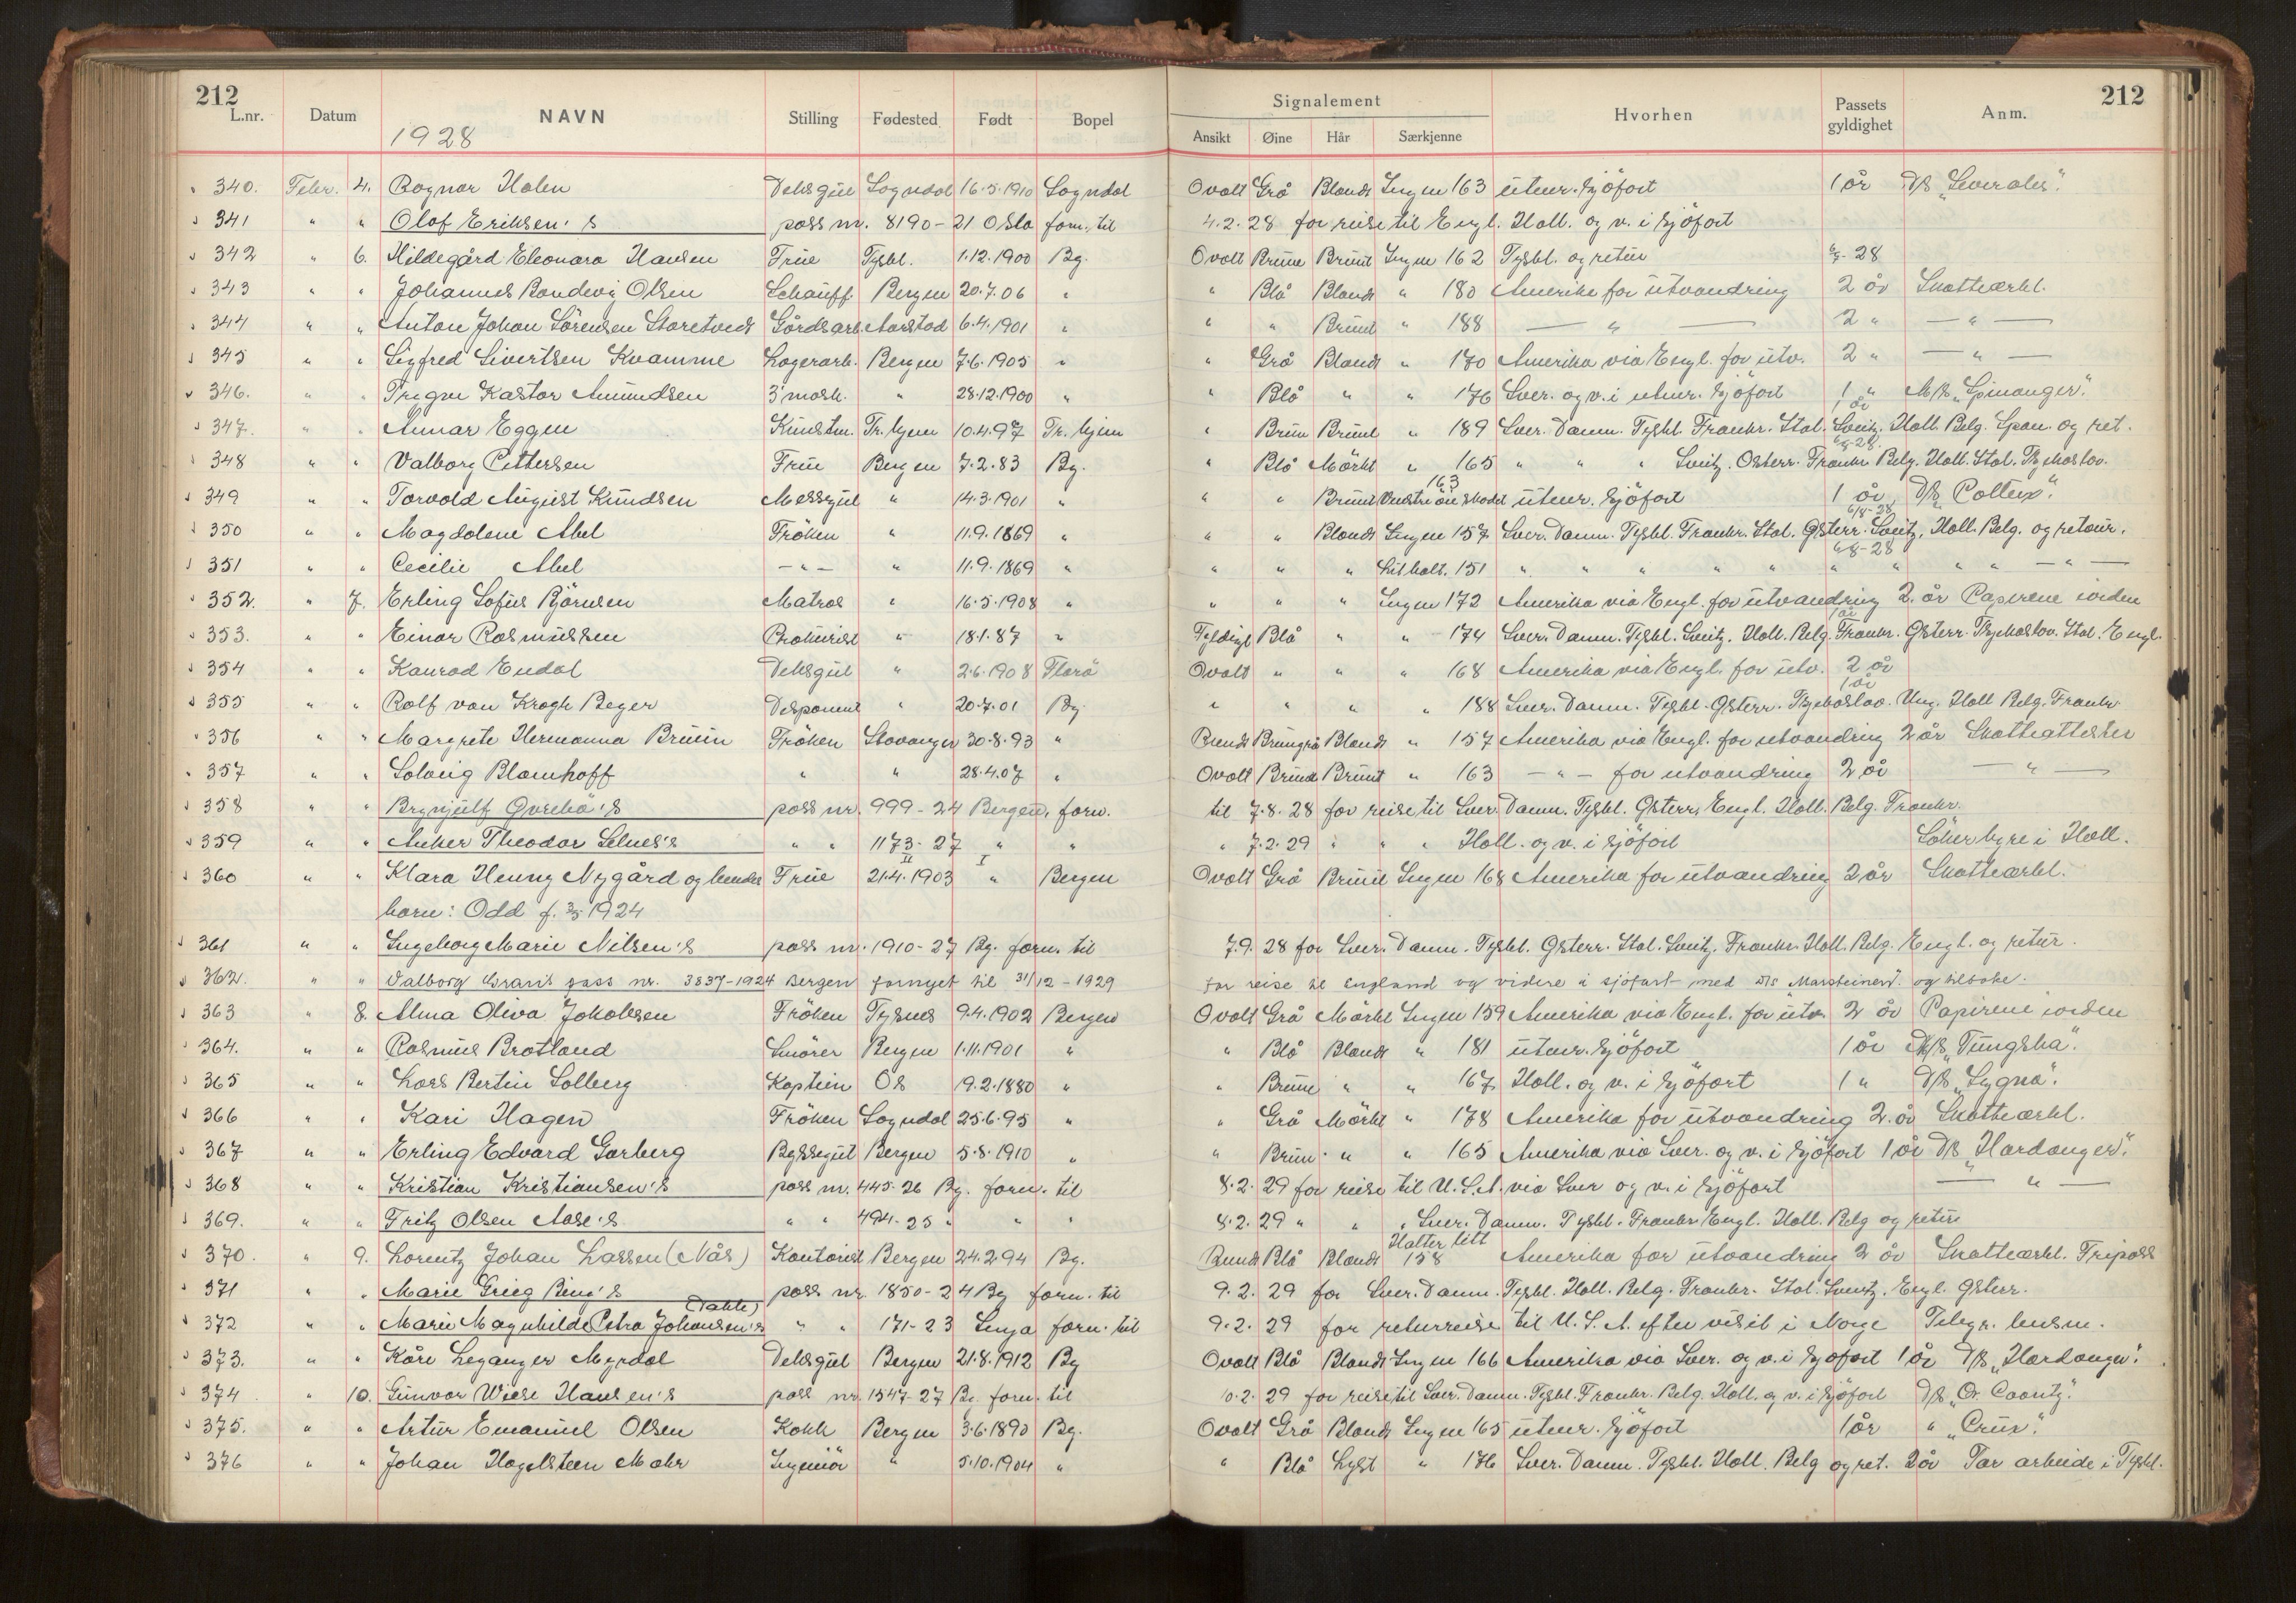 212 212
L.nr. Datum NAVN Stilling Fødested Født Bopel Signalement Hvorhen Passets gyldighet Anm.
Ansikt Øine Hår Særkjenne
1928
340. Febr. 4. Ragnar Halen Deksgut Sogndal 16.5.1910 Sogndal Ovalt Grå Blondt Ingen 163 utenr. sjöfart 1 år
341 " " Olaf Eriksen's pass nr. 8190-21 Oslo forn. til 4.2.28 for reise til Engl. Holl. og v. i sjöfart
342 " 6. Hildegård Eleonara Hansen Frue Tyskl. 1.12.1900 Bg. Ovalt Brune Brunt Ingen 162 Tyskl. og retur
343 " " Johannes Bondevig Olsen Schauff. Bergen 20.7.06 " " Blå Blondt " 180 Amerika for utvandring 2 år Skatteerkl.
344 " " Anton Johan Sörensen Storetvedt Gårdsarb. Aarstad 6.4.1901 " " " Brunt " 188 — " — 2 " — " —
345 " " Sigfred Sivertsen Kvamme Lagerarb. Bergen 7.6.1905 " " Grå Blondt " 170 Amerika via Engl. for utv. 2 " — " —
346. " " Trygve Kastor Amundsen 3' mask. " 28.12.1900 " " Blå " " 176 Sver. og v. i utenr. sjöfart 1 " M/S "Spinanger".
347. " " Annar Eggen Kunstm. Tr.hjem 10.4.97 Tr.hjem " Brun Brunt " 189 Sver. Danm. Tyskl. Frankr. Ital. Sveitz. Holl. Belg. Span. og ret. 1 år
348 " " Valborg Pettersen Frue Bergen 7.2.83 Bg. " Blå Mörkt " 165 " " " Sveitz. Österr. Frankr. Belg. Holl. Ital. Tsjekoslov.
349 " " Torvald August Knudsen Messegut " 14.3.1901 " " " Brunt Venstre öie skadet 163 utenr. sjöfart 1 år D/S "Pollux".
350 " " Magdalene Abel Fröken " 11.9.1869 " " " Blondt Ingen 157 Sver. Danm. Tyskl. Frankr. Ital. Österr. Sveitz. Holl. Belg. og retour. 6/8-28
351 " " Cecilie Abel — " — " 11.9.1869 " " " " Litt halt. 151 " " " " " " " " " — " — 6/8-28
352. " 7. Erling Sofus Björnsen Matros " 16.5.1908 " " " " Ingen 172 Amerika via Engl. for utvandring 2 år Papirene iorden
353. " " Einar Rasmussen Prokurist " 18.1.87 " Fyldigt Blå " " 174 Sver. Danm. Tyskl. Sveitz. Holl. Belg. Frankr. Österr. Tsjekoslov. Ital. Engl. 1 år
354 " " Konrad Endal Deksgut " 2.6.1908 Florö Ovalt " " " 168 Amerika via Engl. for utv. 2 år
355 " " Rolf von Krogh Beyer Disponent " 20.7.01 Bg. " " " " 188 Sver. Danm. Tyskl. Österr. Tsjekoslov. Ung. Holl Belg. Frankr. 1 år
356 " " Margrete Hermanna Bruun Fröken Stavanger 30.8.93 " Rundt Brungrå Blondt " 157 Amerika via Engl. for utvandring 2 år Skatteattester
357 " " Solveig Blomhoff " " 28.4.07 " Ovalt Brune Brunt " 163 — " — for utvandring 2 år — " —
358 " " Brynjulf Övrebö's pass nr. 999-24 Bergen, forn. til 7.8.28 for reise til Sver. Danm. Tyskl. Österr. Engl. Holl. Belg. Frankr.
359 " " Anker Theodor Selnes's " " 1173-27 " " " 7.2.29 " " " Holl. og v. i sjöfart Söker hyre i Holl.
360 " " Klara Henny Nygård og hendes Frue 21.4.1903 " Bergen Ovalt Grå Brunt Ingen 168 Amerika for utvandring 2 år Skatteerkl.
barn: Odd f. 3/5 1924
361 " " Ingeborg Marie Nilsen's pass nr. 1910-27 Bg. forn. til 7.9.28 for Sver. Danm. Tyskl. Österr. Ital. Sveitz. Frankr. Holl. Belg. Engl. og retur.
362. " " Valborg Grans pass nr. 3837-1924 Bergen fornyet til 31/12-1929 for reise til England og videre i sjöfart med D/S Marsteinen. og tilbake.
363 " 8. Alma Oliva Jakobsen Fröken Tysnes 9.4.1902 Bergen Ovalt Grå Mörkt Ingen 159 Amerika via Engl. for utv. 2 år Papirene iorden
364. " " Rasmus Bratland Smörer Bergen 1.11.1901 " " Blå Blondt " 181 utenr. sjöfart 1 år M/S "Tungsha".
365 " " Lars Bertin Solberg Kaptein Os 19.2.1880 " " Brune " " 167 Holl. og v. i sjöfart 1 " D/S "Lygna".
366 " " Kari Hagen Fröken Sogndal 25.6.95 " " Grå Mörkt " 178 Amerika for utvandring 2 år Skatteerkl.
367 " " Erling Edvard Garberg Byssegut Bergen 5.8.1910 " " Brun " " 165 Amerika via Sver. og v. i sjöfart 1 år D/S "Hardanger".
368 " " Kristian Kristiansen's pass nr. 445-26 Bg. forn. til 8.2.29 for reise til U.S.A. via Sver og v. i sjöfart — " —
369. " " Fritz Olsen Aase's " " 494-25 " " " 8.2.29 " " " Sver. Danm. Tyskl. Frankr. Engl. Holl. Belg og retur
370. " 9. Lorentz Johan Lassen (Nås) Kontorist Bergen 24.2.94 Bg. Rundt Blå Blondt Halter litt 158 Amerika for utvandring 2 år Skatteerkl. Fripass
371 " " Marie Grieg Bing's pass nr. 1850-24 Bg forn. til 9.2.29 for Sver. Danm. Tyskl. Holl. Belg. Frankr. Ital. Sveitz. Engl. Österr.
372 " " Marie Magnhilde Petra Johansen's (Dahle) " " 171-23 Senja forn. til 9.2.29 for returreise til U.S.A. efter visit i Norge Telegr. lensm.
373. " " Kåre Leganger Myrdal Deksgut Bergen 21.8.1912 Bg Ovalt Blå Blondt Ingen 166 Amerika via Sver. og v. i sjöfart 1 år D/S "Hardanger".
374 " 10. Gunvor Wiese Hansen's pass nr. 1547-27 Bg. forn. til 10.2.29 for reise til Sver. Danm. Tyskl. Frankr. Belg. Holl. og v. i sjöfart
375. " " Artur Emanuel Olsen Kokk Bergen 3.6.1890 Bg. Ovalt Grå Blondt Ingen 165 utenr. sjöfart 1 år " "Crux".
376 " " Johan Hagelsteen Mohr Ingeniör " 5.10.1904 " " Blå Lyst " 176 Sver. Danm. Tyskl. Holl. Belg og ret. 2 år Tar arbeide i Tyskl.